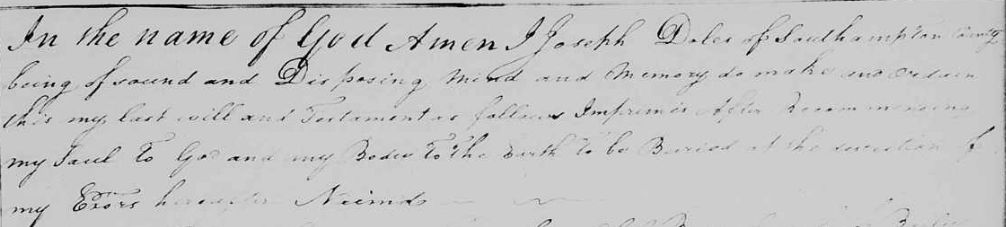 In the name of God Amen I Joseph Doles of Southampton County
being of sound and Disposing Mind and Memory do make and ordain
this my last will and Testament as follows Imprimis After Recommending
my Soul To God and my Body To the Earth to be Buried at the direction of
my Exors hereafter Naimd